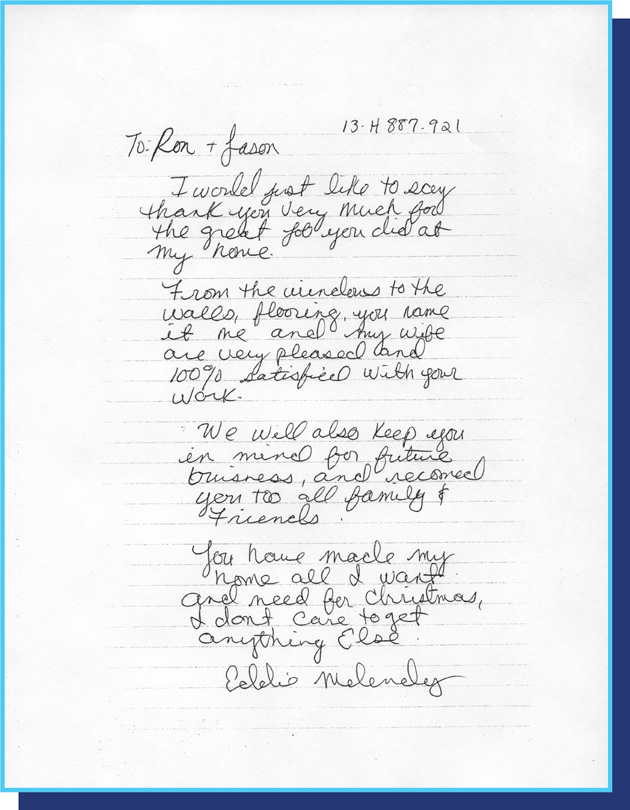 13-H 887-921
To: Ron + Jason
I would just like to say
thank you very much for
the great job you did at
my home.
From the windows to the
walls, flooring, you name
it me and my wife
are very pleased and
100% satisfied with your
work.
We will also keep you
in mind for future
buisness, and recomed
you too all family &
Friends.
You have made my
home all I want
and need for Christmas,
I dont care to get
anything Else.
Eddie